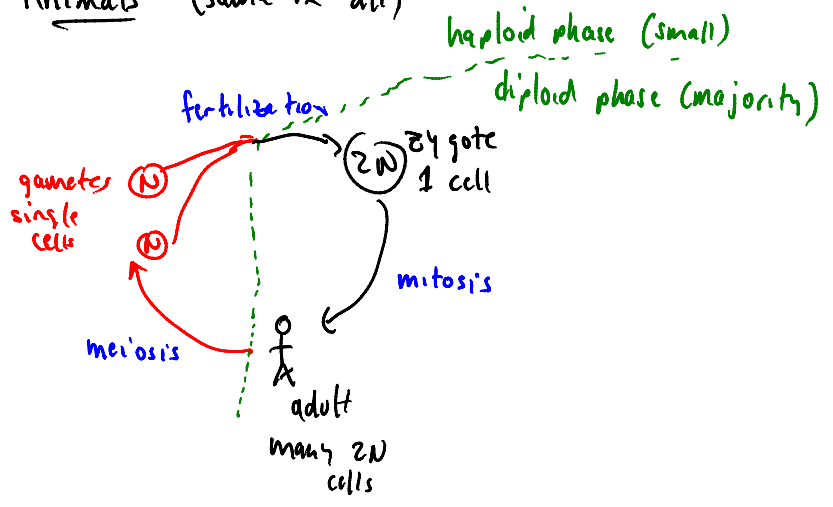 Animals (same in all)
haploid phase (small)
diploid phase (majority)
fertilization
2N
zygote
1 cell
gametes
single
cells
N
N
mitosis
meiosis
adult
many 2N
cells